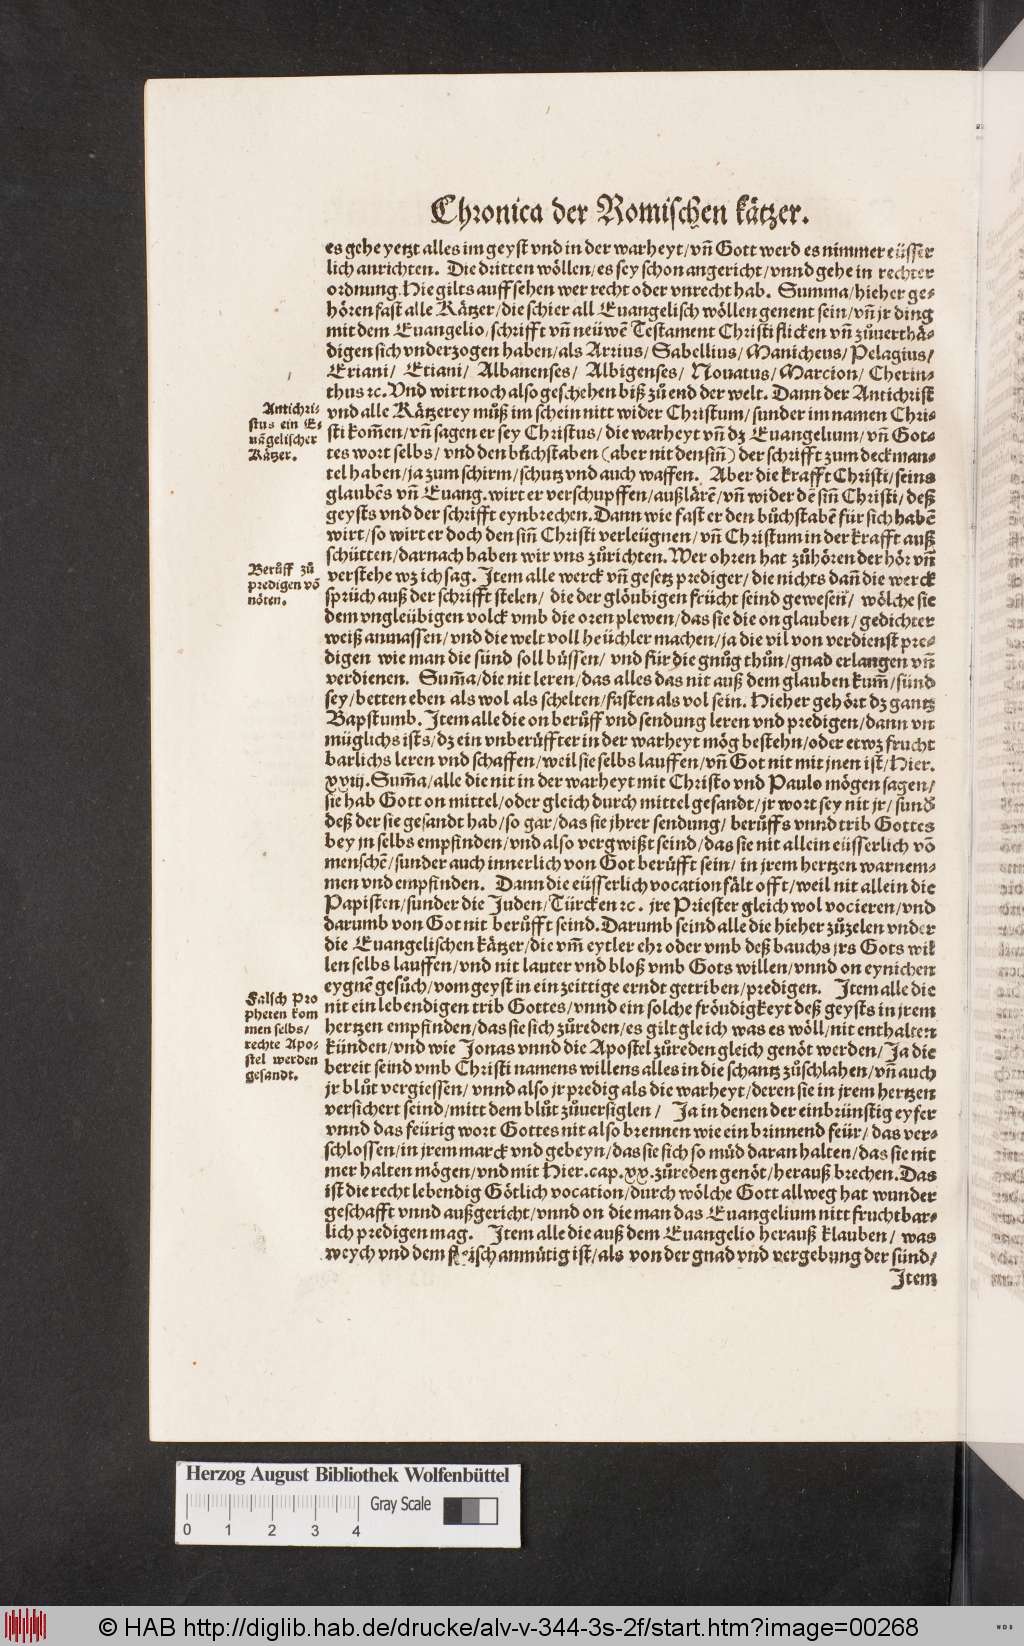 Chronica der Romischen kätzer.
es gehe yetzt alles im geyst vnd in der warheyt/vñ Gott werd es nimmer eüsser
lich anrichten. Die dritten wöllen/es sey schon angericht/vnnd gehe in rechter
ordnung. Hie gilts auff sehen wer recht oder vnrecht hab. Summa/hieher ge-
hören fast alle Kätzer/die schier all Euangelisch wöllen genent sein/vñ jr ding
mit dem Euangelio/schrifft vñ neüwẽ Testament Christi flicken vñ zůuerthä-
digen sich vnderzogen haben/als Arrius/Sabellius/Manicheus/Pelagius/
Eriani/ Etiani/ Albanenses/ Albigenses/ Nouatus/Marcion/Cherin-
thus ꝛc. Vnd wirt noch also geschehen biß zů end der welt. Dann der Antichrist
Antichri-
stus ein E-
uãgelischer
Kätzer.
vnd alle Kätzerey můß im schein nitt wider Christum/sunder im namen Chri-
sti kom̃en/vñ sagen er sey Christus/die warheyt vñ dz Euangelium/vñ Got-
tes wort selbs/vnd den bůchstaben (aber nit den siñ) der schrifft zum deckman-
tel haben/ja zum schirm/schutz vnd auch waffen. Aber die krafft Christi/seins
glaubẽs vñ Euang. wirt er verschupffen/außlärẽ/vñ wider dẽ siñ Christi/deß
geysts vnd der schrifft eynbrechen. Dann wie fast er den bůchstabẽ für sich habẽ
wirt/so wirt er doch den siñ Christi verleügnen/vñ Christum in der krafft auß
schütten/darnach haben wir vns zůrichten. Wer ohren hat zůhören der hör vñ
Berůff zů
predigen võ
nöten.
verstehe wz ich sag. Item alle werck vñ gesetz prediger/die nichts dañ die werck
sprüch auß der schrifft stelen/ die der glöubigen frücht seind gewesen/ wölche sie
dem vngleübigen volck vmb die oren plewen/das sie die on glauben/gedichter
weiß anmassen/vnd die welt voll heüchler machen/ja die vil von verdienst pre-
digen wie man die sünd soll büssen/ vnd für die gnůg thůn/gnad erlangen vñ
verdienen. Sum̃a/die nit leren/das alles das nit auß dem glauben kum̃/sünd
sey/betten eben als wol als schelten/fasten als vol sein. Hieher gehört dz gantz
Bapstumb. Item alle die on berůff vnd sendung leren vnd predigen/dann vn
müglichs ists/dz ein vnberůffter in der warheyt mög bestehn/oder etwz frucht
barlichs leren vnd schaffen/weil sie selbs lauffen/vñ Got nit mit jnen ist/Hier.
xxiij. Sum̃a/alle die nit in der warheyt mit Christo vnd Paulo mögen sagen/
sie hab Gott on mittel/oder gleich durch mittel gesandt/jr wort sey nit jr/sund
deß der sie gesandt hab/so gar/das sie jhrer sendung/ berůffs vnnd trib Gottes
bey jn selbs empfinden/vnd also vergwißt seind/das sie nit allein eüsserlich võ
menschẽ/sunder auch innerlich von Got berůfft sein/ in jrem hertzen warnem-
men vnd empfinden. Dann die eüsserlich vocation fält offt/weil nit allein die
Papisten/sunder die Juden/Türcken ꝛc. jre Priester gleich wol vocieren/vnd
darumb von Got nit berůfft seind. Darumb seind alle die hieher zůzelen vnder
die Euangelischen kätzer/die vm̃ eytler ehr oder vmb deß bauchs jrs Gots wil
len selbs lauffen/vnd nit lauter vnd bloß vmb Gots willen/vnnd on eynichen
eygnẽ gesůch/vom geyst in ein zeittige erndt getriben/predigen. Item alle die
Falsch Pro
pheten kom
men selbs/
rechte Apo-
stel werden
gesandt.
nit ein lebendigen trib Gottes/vnnd ein solche fröudigkeyt deß geysts in jrem
hertzen empfinden/das sie sich zůreden/es gilt gleich was es wöll/nit enthalten
künden/vnd wie Jonas vnnd die Apostel zůreden gleich genöt werden/Ja die
bereit seind vmb Christi namens willens alles in die schantz zůschlahen/vñ auch
jr blůt vergiessen/ vnnd also jr predig als die warheyt/deren sie in jrem hertzen
versichert seind/mitt dem blůt zůuersiglen/ Ja in denen der einbrünstig eyfer
vnnd das feürig wort Gottes nit also brennen wie ein brinnend feür/das ver-
schlossen/in jrem marck vnd gebeyn/das sie sich so můd daran halten/das sie nit
mer halten mögen/vnd mit Hier. cap. xx. zůreden genöt/herauß brechen. Das
ist die recht lebendig Götlich vocation/durch wölche Gott allweg hat wunder
geschafft vnnd außgericht/vnnd on die man das Euangelium nitt fruchtbar-
lich predigen mag. Item alle die auß dem Euangelio herauß klauben/ was
weych vnd dem fleisch anmütig ist/als von der gnad vnd vergebung der sünd/
Item
Herzog August Bibliothek Wolfenbüttel
0 1 2 3 4
Gray Scale
© HAB http://diglib.hab.de/drucke/alv-v-344-3s-2f/start.htm?image=00268